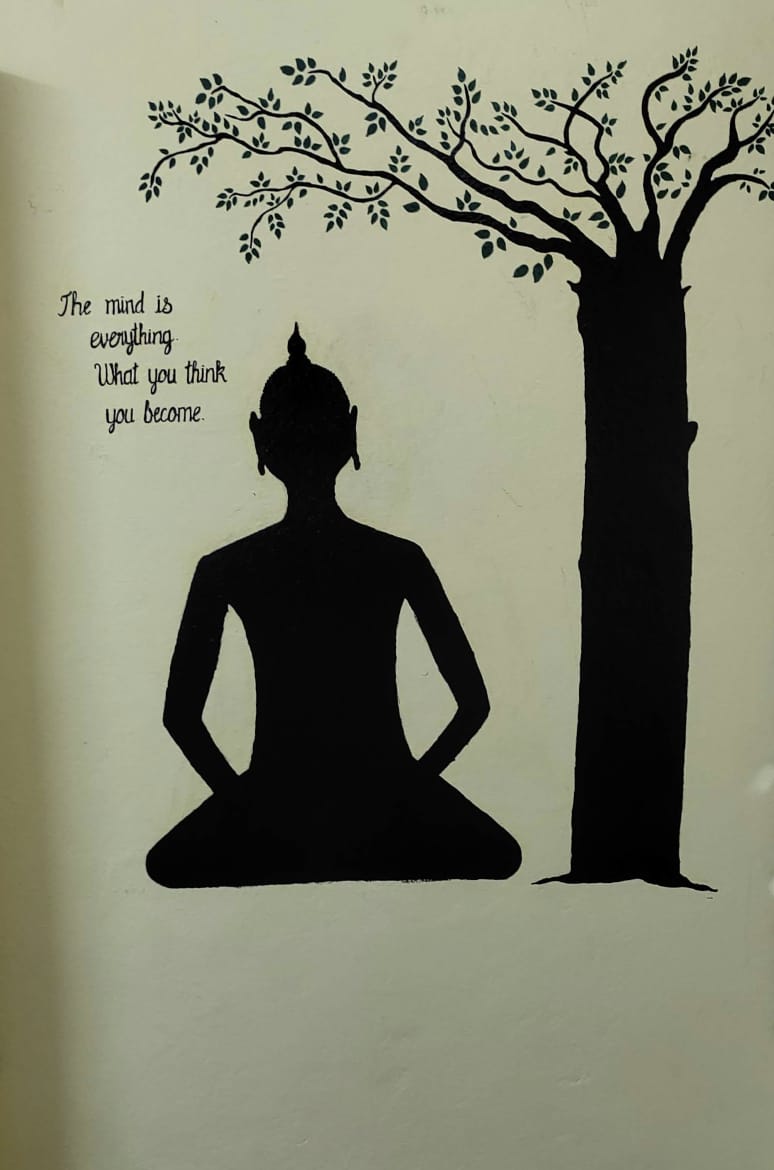 The mind is
everything.
What you think
you become.